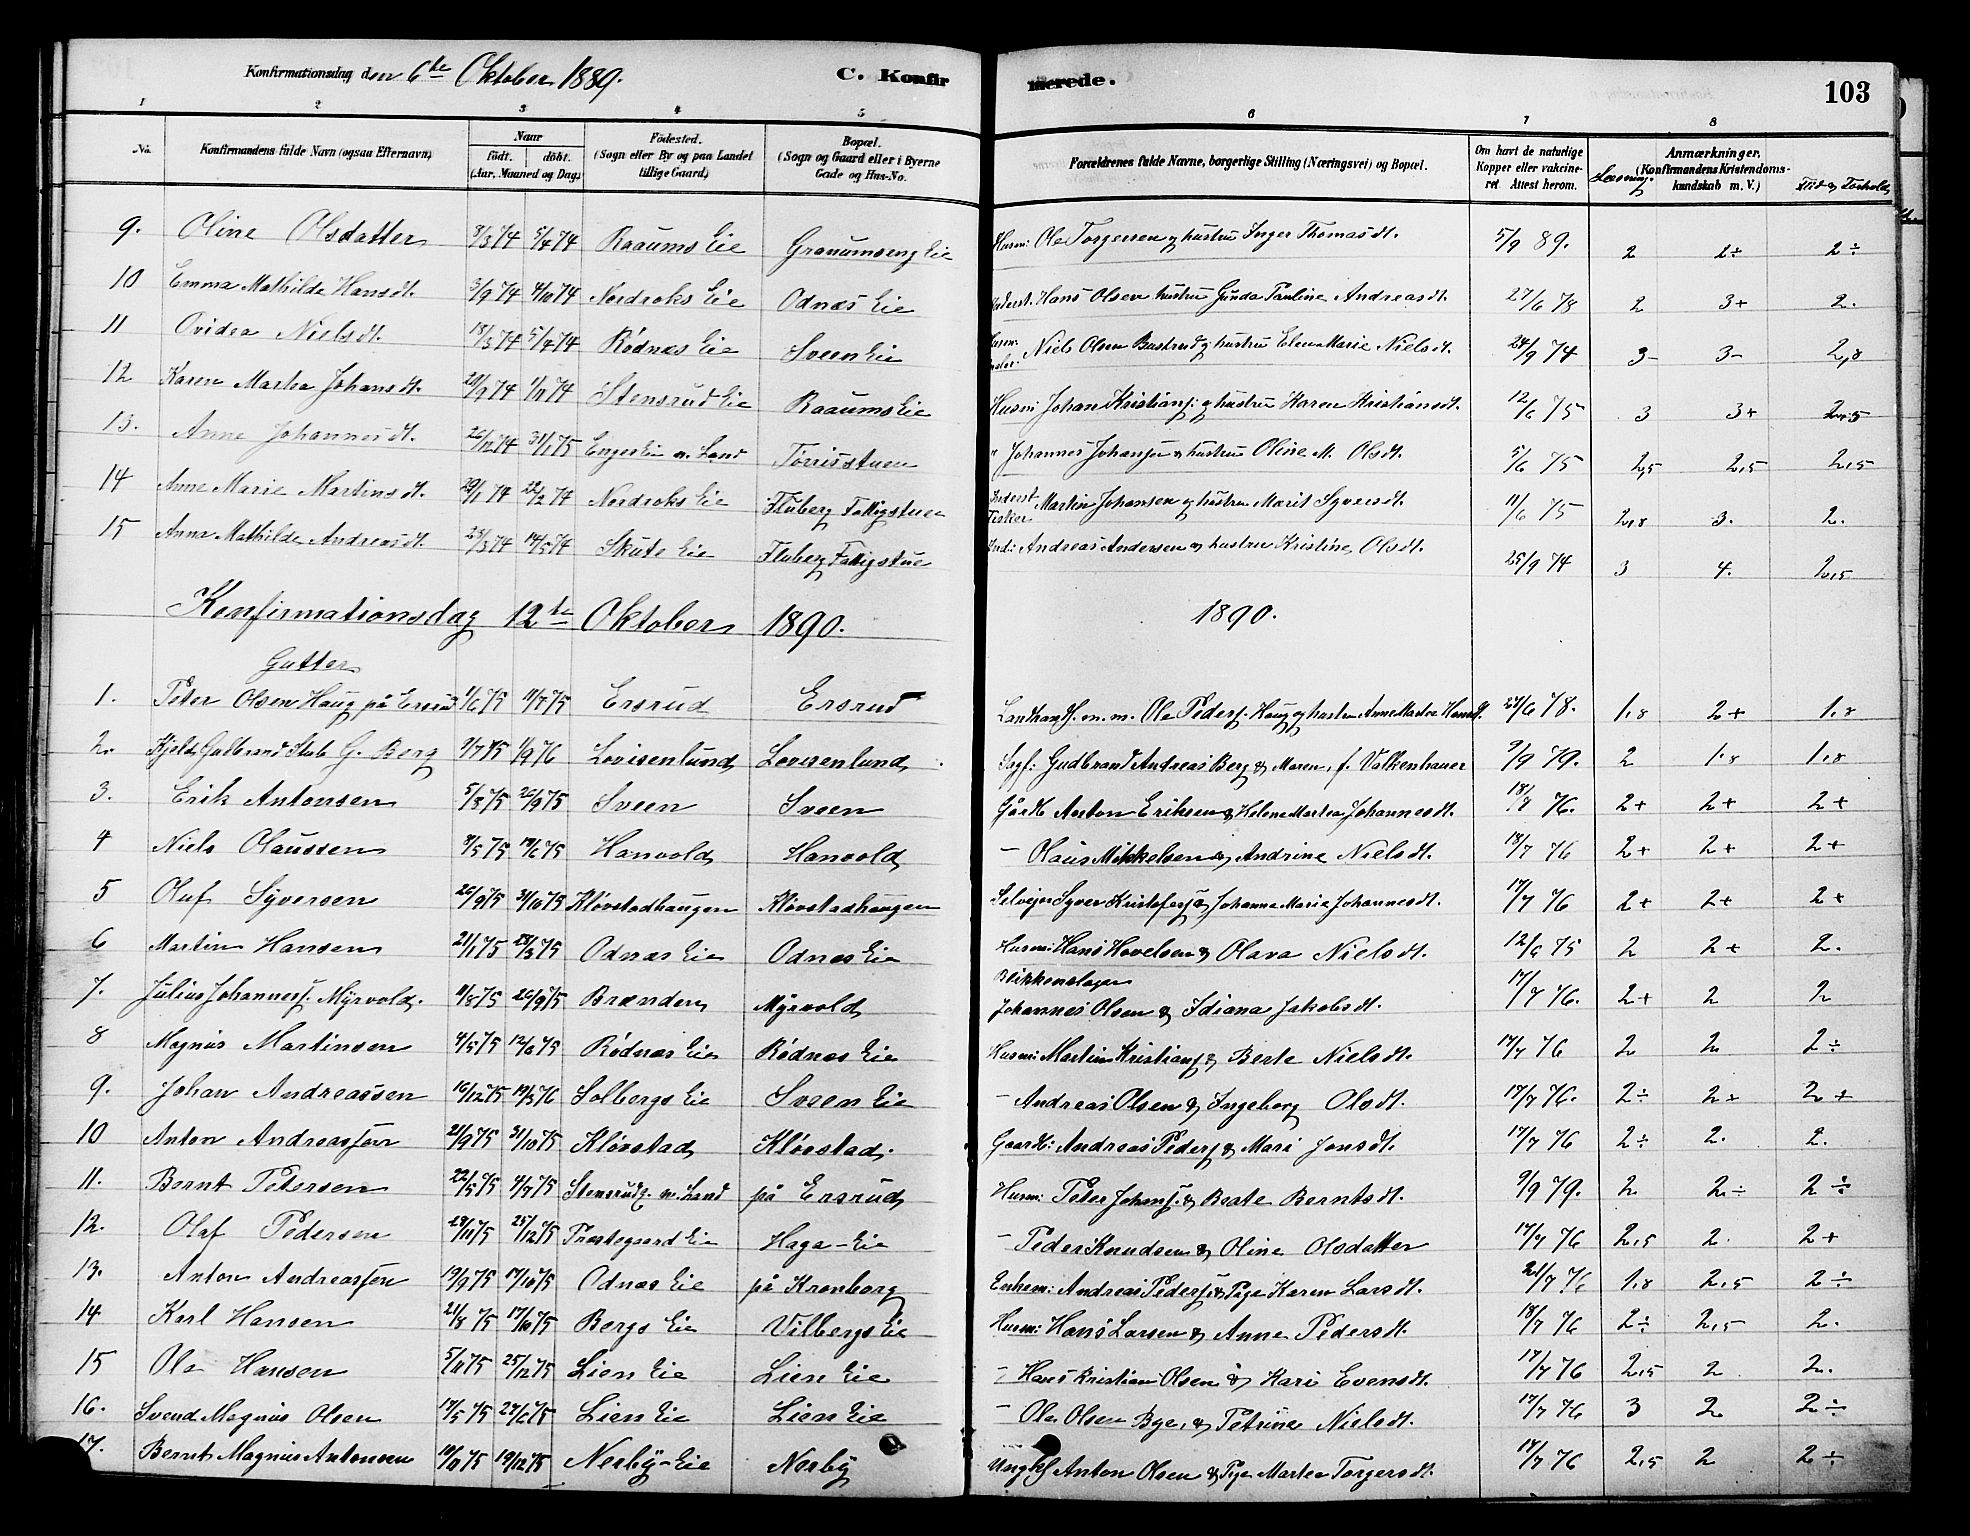 Konfirmationsdag den 6te Oktober 1889. C. Konfirmerede. 103
1 2 3 4 5 6 7 8
No. Konfirmandens fulde Navn (ogsaa Efternavn) Naar födt. döbt. (Aar, Maaned og Dag) Födested. (Sogn eller By og paa Landet tillige Gaard) Bopæl. (Sogn og Gaard eller i Byerne Gade og Hus-No. Forældrenes fulde Navne, borgerlige Stilling (Næringsvei) og Bopæl. Om havt de naturlige Kopper eller vakcineret Attest herom. Læsning. Anmærkninger. (Konfirmandens Kristendomskundskab m. V.) Flid og Forhold
9. Oline Olsdatter 8/3 74 5/4 74 Raaums Eie Granumseng Eie Husm: Ole Torgersen og hustru Inger Thomasdt. 5/9 89. 2 2÷ 2÷
10 Emma Mathilde Hansdt. 3/9 74 4/10 74 Nordroks Eie Odnæs Eie Inderst. Hans Olsen hustru Gunda Pauline Andreasdt. 27/6 78 2 3+ 2.
11 Ovidea Nielsdt. 18/3 74 5/4 74 Rødnæs Eie Sveen Eie Husm. Niels Olsen Bustrud og hustru Elen Marie Nielsdt. 24/9 74 3- 3- 2,8
12 Karen Martea Johansdt. 28/9 74 1/11 74 Stensrud Eie Raaums Eie Husm: Johan Kristians: og hustru Karen Kristiansdt. 12/6 75 3 3+ 2,5
13. Anne Johannesdt. 26/12 74 31/1 75 Enger Eie n. Land Torrisstuen " Johannes Johansen & hustru Oline M. Olsdt. 5/6 75 2,5 2,5 2,5
14 Anne Marie Martinsdt. 29/1 74 22/2 74 Nordroks Eie Fluberg Fattigstue Inderst Fisker Martin Johansen og hustru Marit Syversdt. 11/6 75 2,8 3. 2.
15 Anna Mathilde Andreasdt. 23/3 74 14/5 74 Skute Eie Fluberg Fattigstue Ind: Andreas Andersen og hustru Kristine Olsdt. 25/9 74 3 4. 2,5
Konfirmationsdag 12te Oktober 1890. 1890.
Gutter
1. Peter Olsen Haug på Ersrud 1/6 75 11/7 75 Ersrud Ersrud Landhandl. m. m. Ole Peders. Haug og hustru Anne Martea Hansdt. 27/6 78. 1,8 2+ 1,8
2. Kjeld Gulbrand Stub G. Berg 9/7 75 1/9 76 Lovisenlund Lovisenlund Sagf: Gudbrand Andreas Berg & Maren, f. Valkenhauer 9/9 79. 2 1,8 1,8
3. Erik Antonsen 5/8 75 26/9 75 Sveen Sveen Gårdb Anton Eriksen & Helene Martea Johannesdt. 18/7 76. 2+ 2+ 2+
4 Niels Olaussen 8/5 75 13/6 75 Hanvold Hanvold - Olaus Mikkelsen & Andrine Nielsdt. 18/7 76 2+ 2+ 2+
5 Oluf Syversen 26/9 75 31/10 75 Kløvstadhaugen Kløvstadhaugen Selvejer Syver Kristofers & Johanne Marie Johannesdt. 17/7 76 2+ 2+ 2+
6 Martin Hansen 21/1 75 28/3 75 Odnæs Eie Odnæs Eie Husm: Hans Hovelsen & Olava Nielsdt. 12/6 75 2 2+ 2.
7. Julius Johanness. Myrvold. 11/8 75 26/9 75 Brænden Myrvold Blikkenslager Johannes Olsen & Idiana Jakobsdt. 17/7 76. 2+ 2 2
8 Magnus Martinsen 4/5 75 12/6 75 Rødnæs Eie Rødnæs Eie Husm: Martin Kristians & Berte Nielsdt. 17/7 76 2 2 2÷
9. Johan Andreassen 16/12 75 19/3 76 Solbergs Eie Sveen Eie - Andreas Olsen & Ingeborg Olsdt. 17/7 76. 2÷ 2+ 2+
10 Anton Andreassen 21/9 75 31/10 75 Kløvstad Kløvstad. Gaardb: Andreas Peders & Mari Jonsdt. 17/7 76 2÷ 2. 2.
11. Bernt Petersen 22/5 75 4/7 75 Stensrud E. n. Land på Ersrud Husm: Peter Johans. & Beate Berntsdt. 9/9 79. 2 2÷ 2÷
12. Olaf Pedersen 29/11 75 25/12 75 Præstegaard Eie Haga-Eie - Peder Knudsen & Oline Olsdatter 17/7 76 2,5 2. 2+
13. Anton Andreassen 19/9 75 17/10 75 Odnæs Eie på Kronborg Enkem: Andreas Peders. & Pige Karen Larsdt. 21/7 76 1,8 2,5 2÷
14 Karl Hansen 21/8 75 17/10 75 Bergs Eie Vilbergs Eie Husm: Hans Larsen & Anne Pedersdt. 18/7 76 2÷ 2,5 2.
15 Ole Hansen 5/11 75 25/12 75 Lien Eie Lien Eie - Hans Kristian Olsen & Kari Evensdt. 17/7 76 2,5 2 2.
16. Svend Magnus Olsen 17/5 75 27/6 75 Lien Eie Lien Eie - Ole Olsen Bye, & Petrine Nielsdt. 17/7 76 3 2 2÷
17. Bernt Magnus Antonsen 10/11 75 19/12 75 Nerby-Eie Nerby Ungkf Anton Olsen & Pige Martea Torgersdt. 17/7 76 2,5 2 2÷